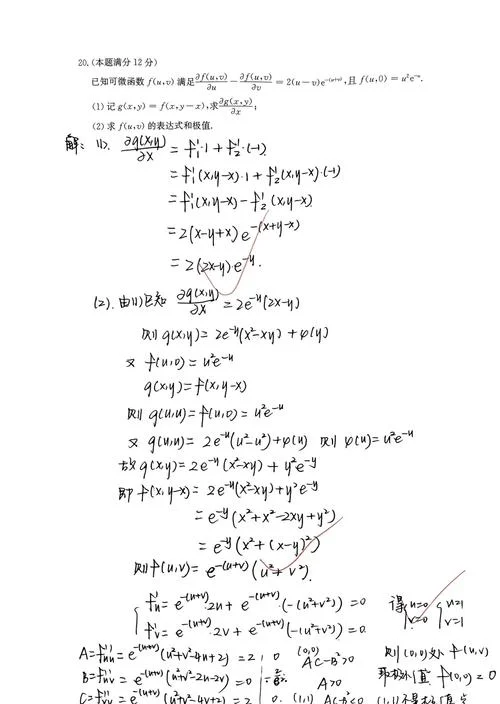 20.(本题满分12分)
已知可微函数 f(u,v) 满足 ∂f(u,v)/∂u − ∂f(u,v)/∂v = 2(u−v)e^{−(u+v)},且 f(u,0)=u²e^{−u}.
(1) 记 g(x,y)=f(x,y−x),求 ∂g(x,y)/∂x;
(2) 求 f(u,v) 的表达式和极值.
解: (1). ∂g(x,y)/∂x = f₁'·1 + f₂'·(−1)
= f₁'(x,y−x)·1 + f₂'(x,y−x)·(−1)
= f₁'(x,y−x) − f₂'(x,y−x)
= 2(x−y+x) e^{−(x+y−x)}
= 2(2x−y)·e^{−y}.
(2). 由(1)已知 ∂g(x,y)/∂x = 2e^{−y}(2x−y)
则 g(x,y) = 2e^{−y}(x²−xy) + φ(y)
又 f(u,0) = u²e^{−u}
g(x,y) = f(x,y−x)
则 g(u,u) = f(u,0) = u²e^{−u}
又 g(u,u) = 2e^{−u}(u²−u²)+φ(u) 则 φ(u)=u²e^{−u}
故 g(x,y) = 2e^{−y}(x²−xy) + y²e^{−y}
即 f(x,y−x) = 2e^{−y}(x²−xy)+y²e^{−y}
= e^{−y}(x²+x²−2xy+y²)
= e^{−y}(x²+(x−y)²)
则 f(u,v) = e^{−(u+v)}(u²+v²).
{ f'u = e^{−(u+v)}·2u + e^{−(u+v)}·(−(u²+v²)) = 0 得 { u=0 v=0 { u=1 v=1
f'v = e^{−(u+v)}·2v + e^{−(u+v)}(−(u²+v²)) = 0
A = f''uu = e^{−(u+v)}(u²+v²−4u+2) = 2, 0 (0,0) AC−B²>0 则 (0,0) 处 f(u,v)
B = f''uv = e^{−(u+v)}(u²+v²−2u−2v) = 0 A>0 取极小值 f(0,0)=0
C = f''vv = e^{−(u+v)}(u²+v²−4v+2) = 2, 0. (1,1) AC−B²<0 (1,1)不是极值点